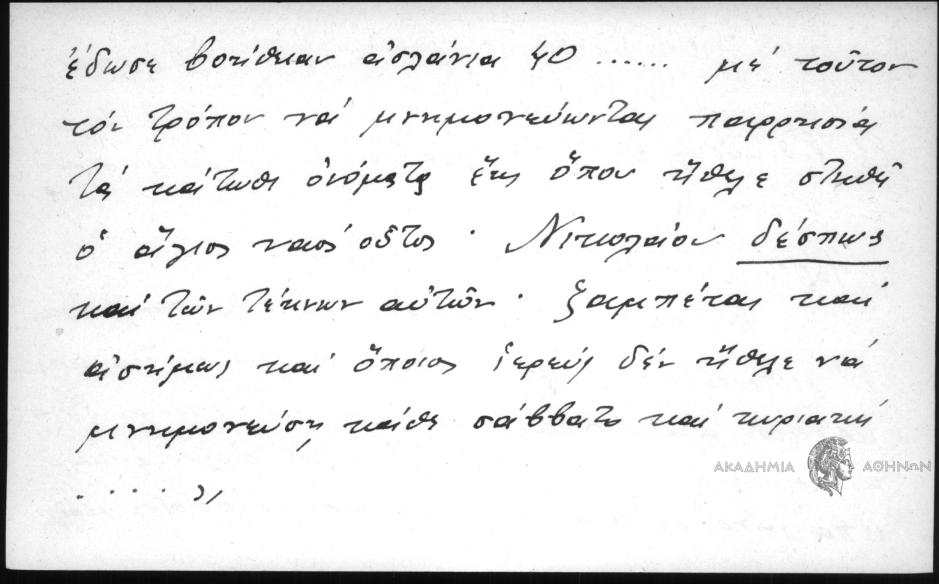 ἔδωσε βοτίθειαν ἀσλάνια 40 ...... μέ τοῦτον
τόν τρόπον νά μνημονεύωνται παρρησιᾳ
τά κάτωθι ὀνόματα ἕως ὅπου ἤθελε στηθῆ
ὁ ἅγιος ναός οὗτος · Νικολαίου δέσπως
καί τῶν τέκνων αὐτῶν · ξαμπέτας καί
ἀσήμως καί ὅποιος ἱερεύς δέν ἤθελε νά
μνημονεύση κάθε σάββατο και κυριακή
. . . . . »
ΑΚΑΔΗΜΙΑ ΑΘΗΝΩΝ